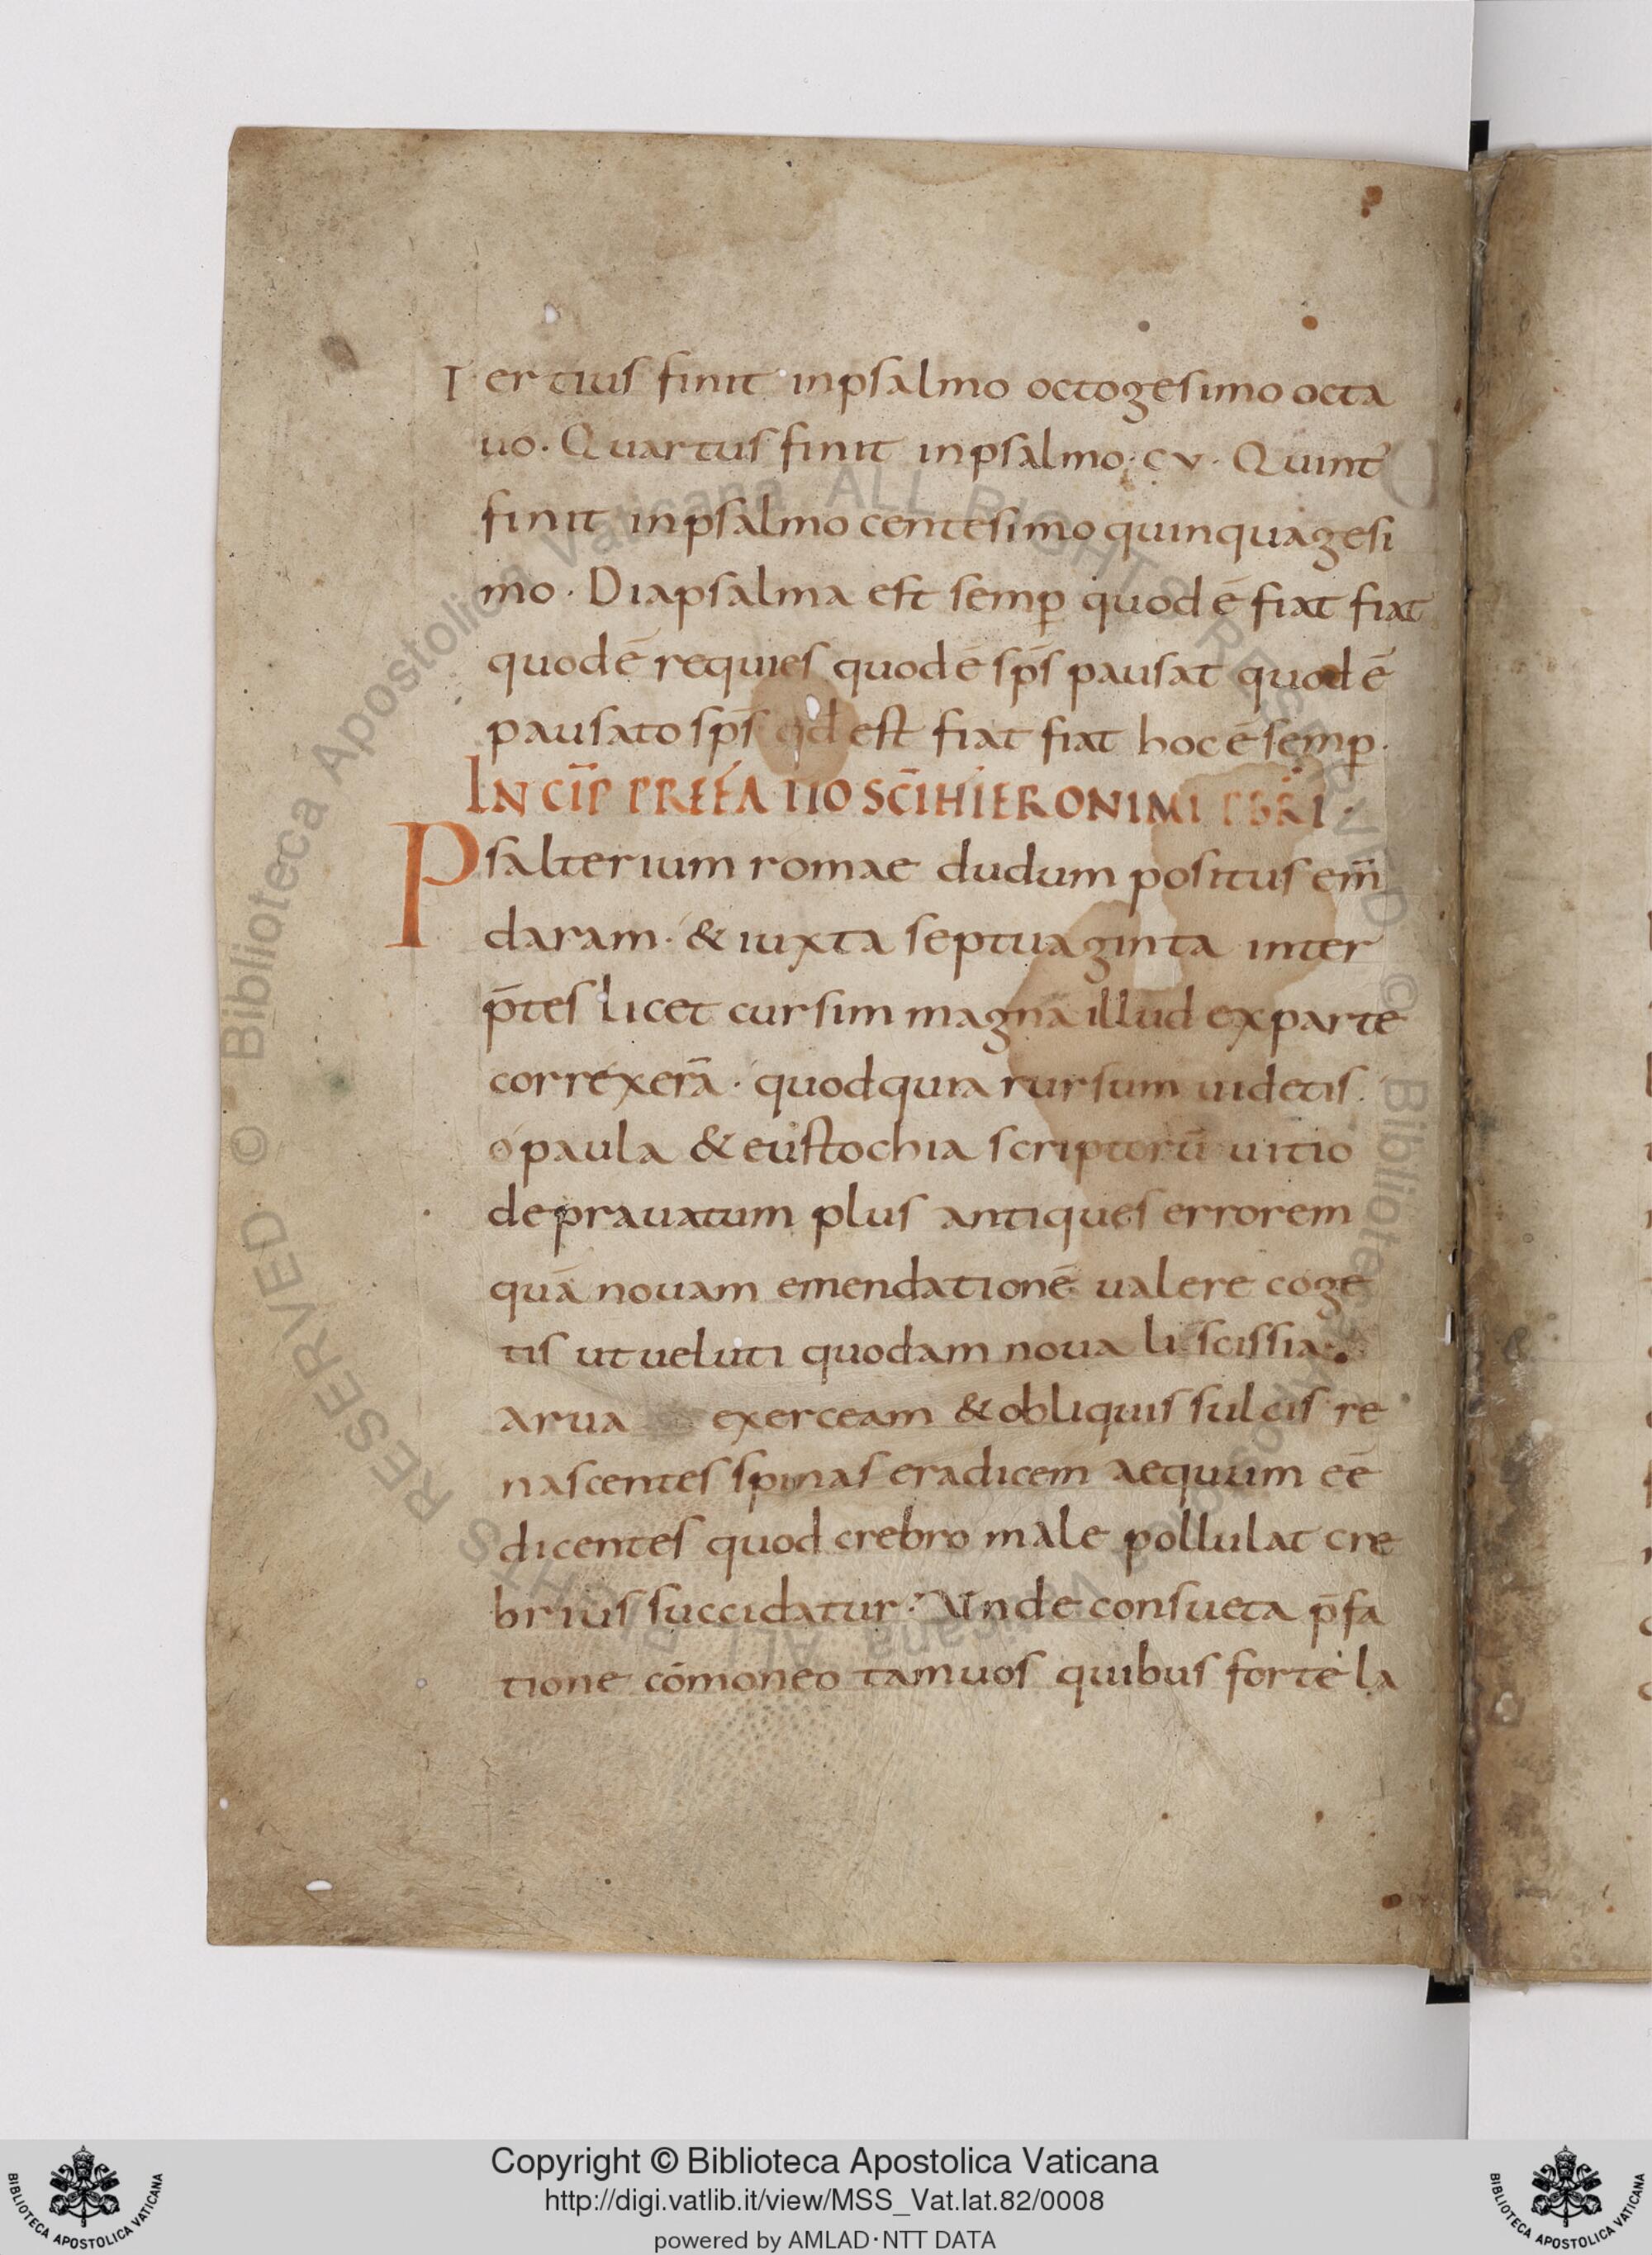 Tertius finit inpsalmo octogesimo octa
uo. Quartus finit inpsalmo. cv. Quint᾿
finit inpsalmo centesimo quinquagesi
mo. Diapsalma est semꝑ quod ē fiat fiat
quod ē requies quod ē sp̄s pausat quod ē
pausato sp̄s qd est fiat fiat hoc ē semꝑ.
INCIP̄ PREFATIO SC̄I HIERONIMI PB̄RI.
Psalterium romae dudum positus em̄
daram. & iuxta septuaginta inter
p̄tes licet cursim magnā illud exparte
correxerā. quodquia rursum uidetis.
o paula & eustochia scriptorū uitio
deprauatum plus antiques errorem
quā nouam emendationē ualere coge
tis utueluti quodam noua li scissia.
arua exerceam & obliquis sulcis re
nascentes spinas eradicem aequum eē
dicentes quod crebro male pollulat cre
brius succidatur. Unde consueta p̄fa
tione cōmoneo tamuos quibus forte la
© Biblioteca Apostolica Vaticana ALL RIGHTS RESERVED © Biblioteca Apostolica Vaticana ALL RIGHTS RESERVED
Copyright © Biblioteca Apostolica Vaticana
http://digi.vatlib.it/view/MSS_Vat.lat.82/0008
powered by AMLAD·NTT DATA
BIBLIOTECA APOSTOLICA VATICANA
BIBLIOTECA APOSTOLICA VATICANA